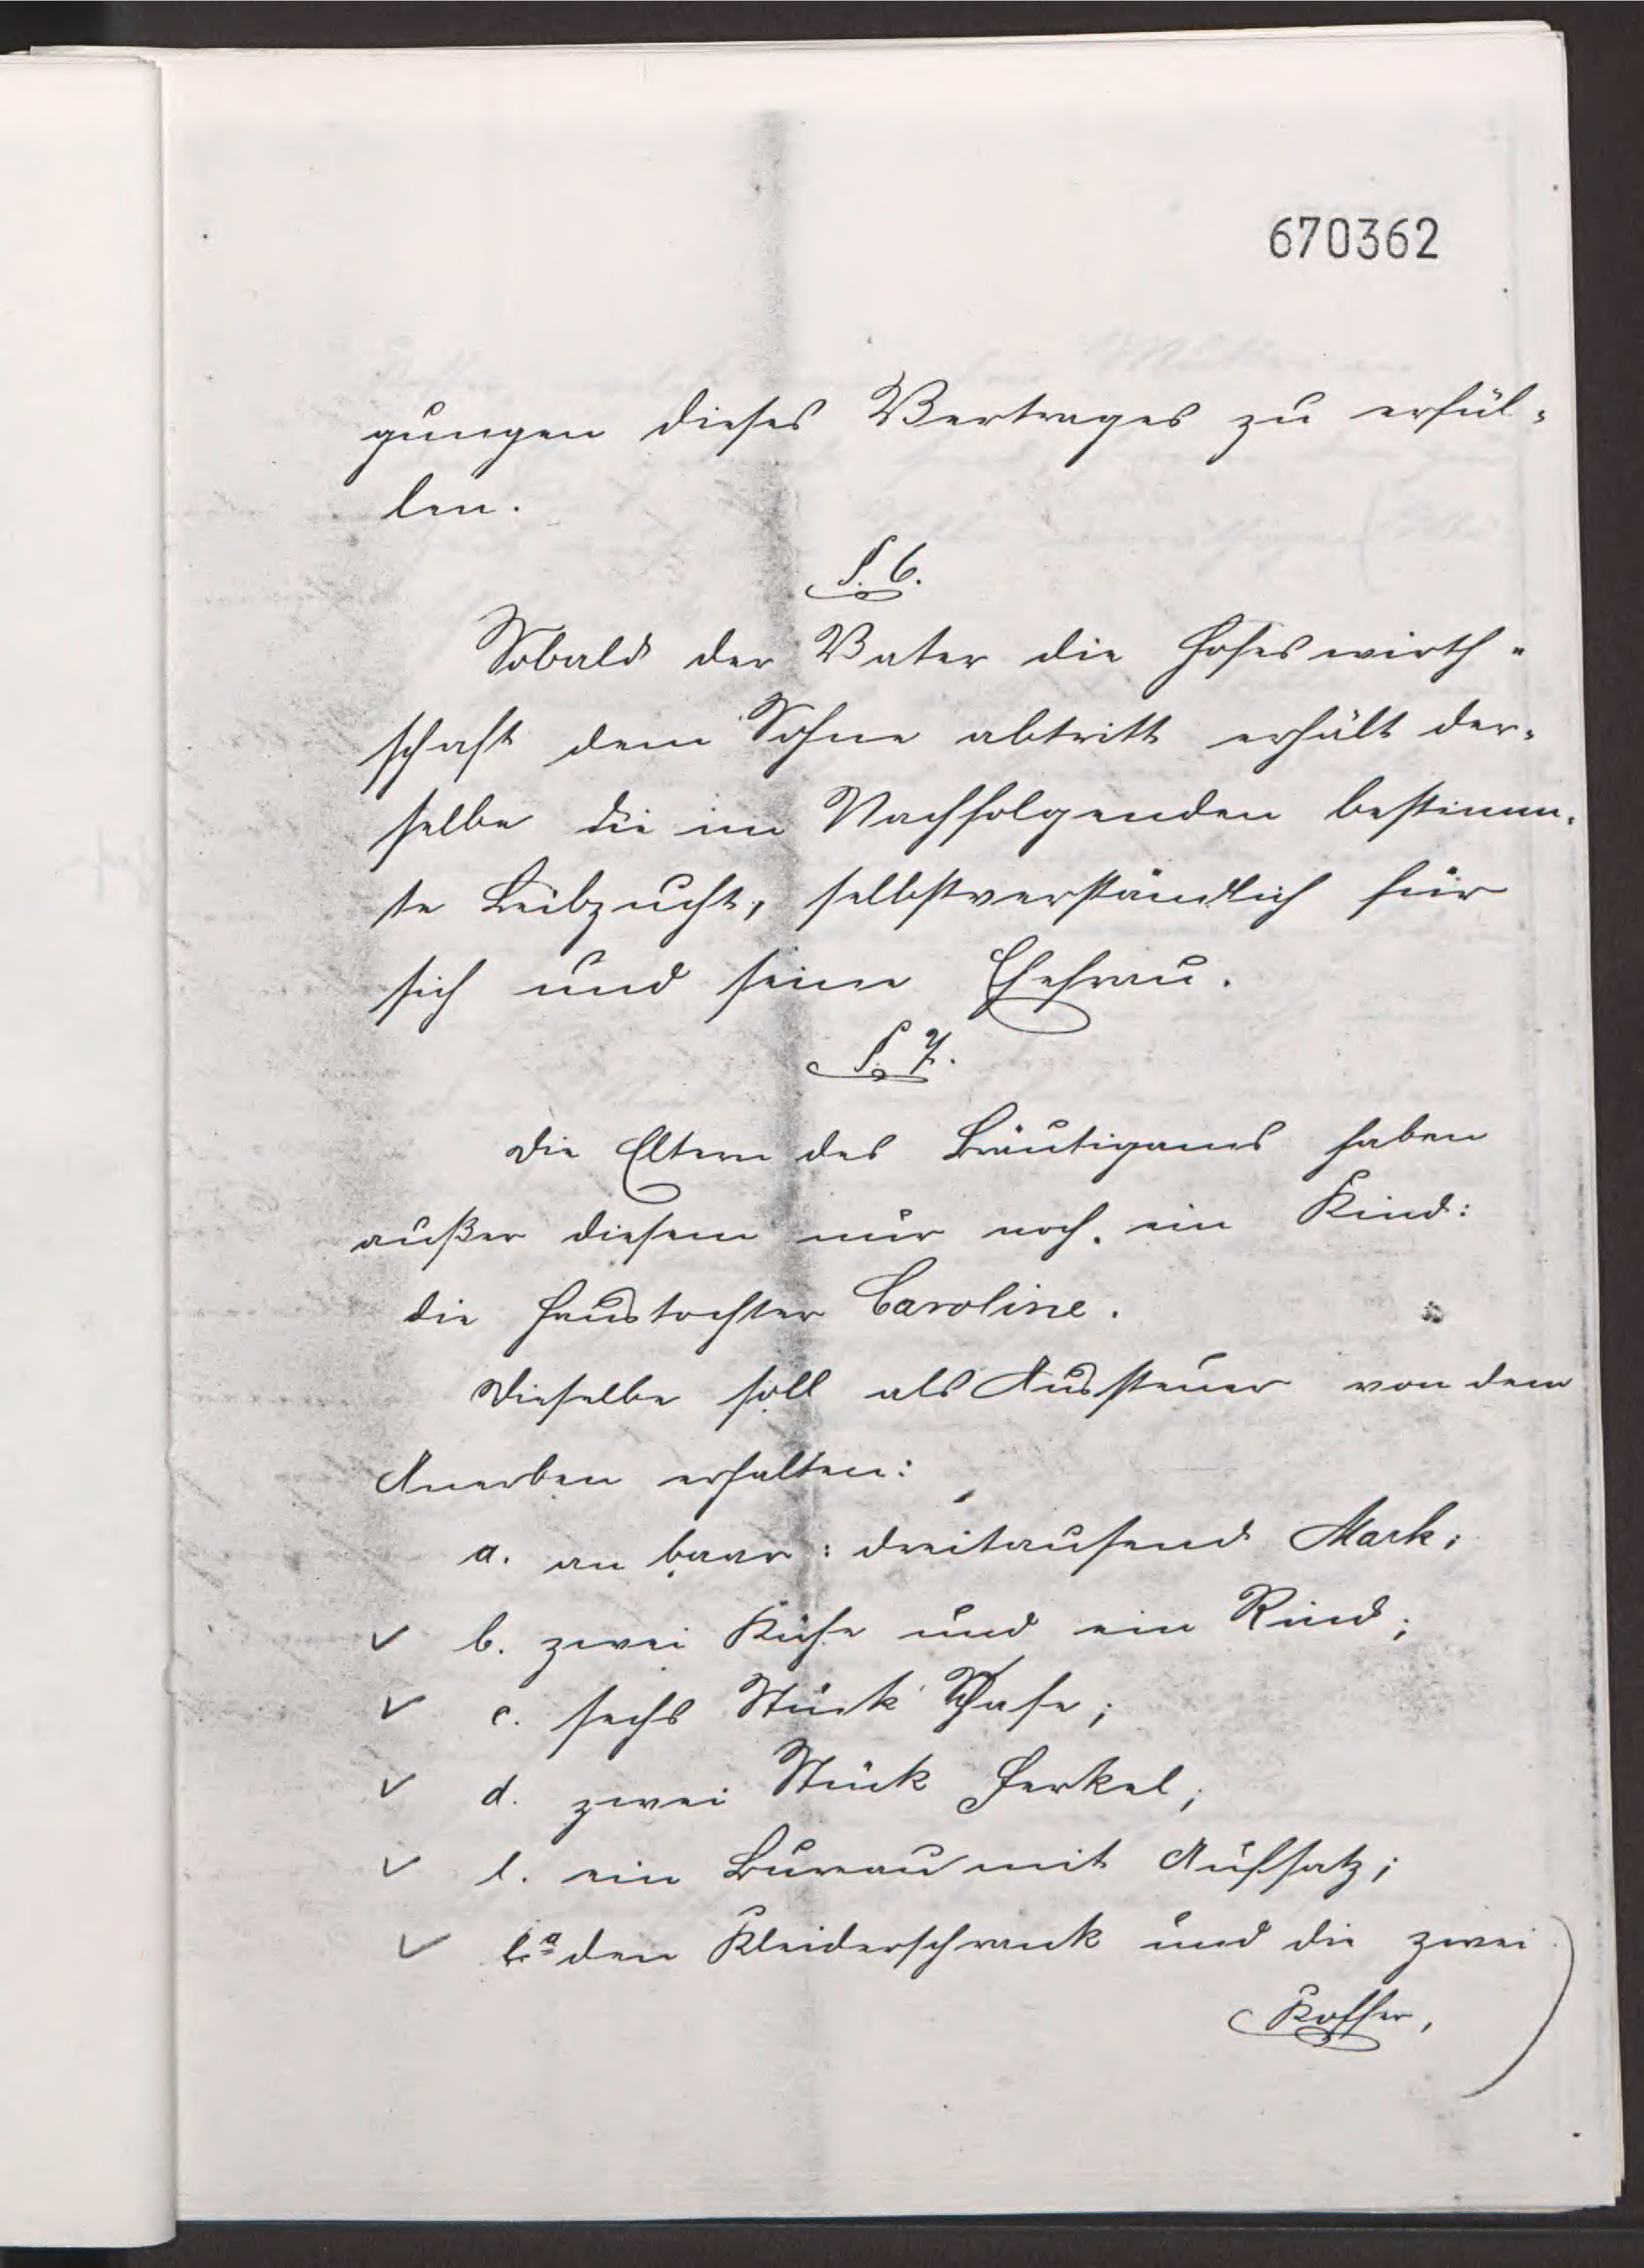 670362
gungen dieses Vertrages zu erfül-
len.
§. 6.
Sobald der Vater die Hofeswirth-
schaft dem Sohne abtritt erhält der-
selbe die im Nachfolgenden bestimm-
te Leibzucht, selbstverständlich für
sich und seine Ehefrau.
§. 7.
Die Eltern des Bräutigams haben
außer diesem nur noch ein Kind:
die Haustochter Caroline.
Dieselbe soll als Aussteuer von dem
Anerben erhalten:
a. an baar: dreitausend Mark;
✓ b. zwei Kühe und ein Rind;
✓ c. sechs Stück Schafe;
✓ d. zwei Stück Ferkel;
✓ e. ein Bureau mit Aufsatz;
✓ e.a den Kleiderschrank und die zwei
Koffer,